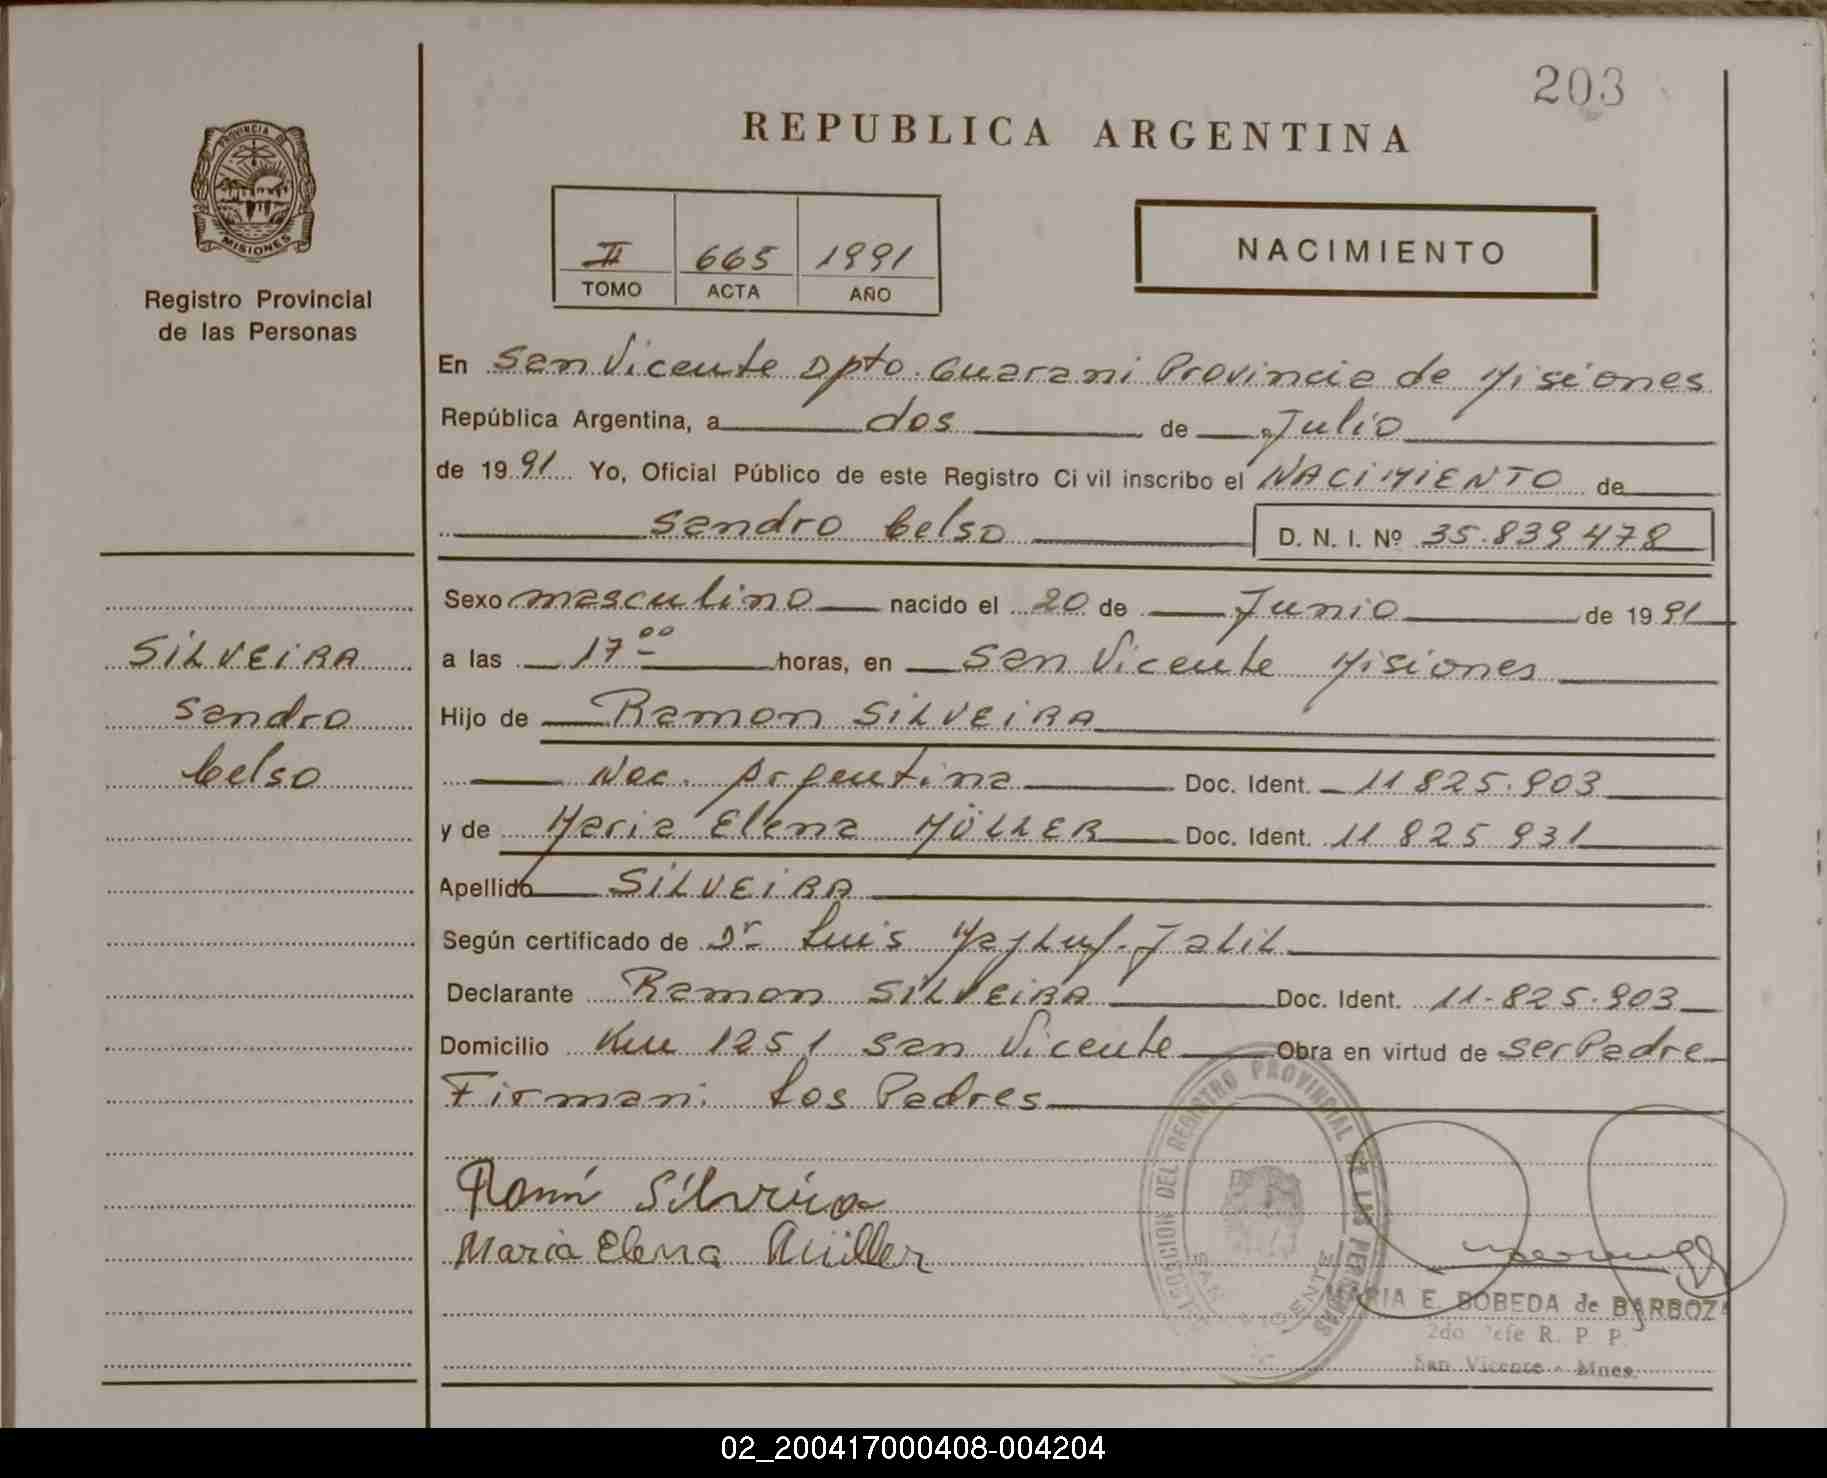 203
REPUBLICA ARGENTINA
PROVINCIA DE
MISIONES
Registro Provincial
de las Personas
II 665 1991
TOMO ACTA AÑO
NACIMIENTO
En San Vicente Dpto. Guarani Provincia de Misiones
República Argentina, a dos de Julio
de 1991 Yo, Oficial Público de este Registro Civil inscribo el NACIMIENTO de
Sandro Celso D. N. I. Nº 35.839 478
Sexo masculino nacido el 20 de Junio de 1991
a las 17 00 horas, en San Vicente Misiones
Hijo de Ramon SILVEIRA
Nac. Argentina Doc. Ident. 11 825.903
y de Maria Elena MÜLLER Doc. Ident. 11 825 931
Apellido SILVEIRA
Según certificado de Dr Luis Jalil
Declarante Ramon SILVEIRA Doc. Ident. 11.825.903
Domicilio Km 1251 San Vicente Obra en virtud de ser Padre
Firman: Los Padres
SILVEIRA
Sandro
Celso
Ramón Silveira
Maria Elena Müller
DEL REGISTRO PROVINCIAL DE LAS PERSONAS
SAN VICENTE
MARIA E. BOBEDA de BARBOZA
2do Jefe R. P. P.
San Vicente - Mnes.
02_200417000408-004204